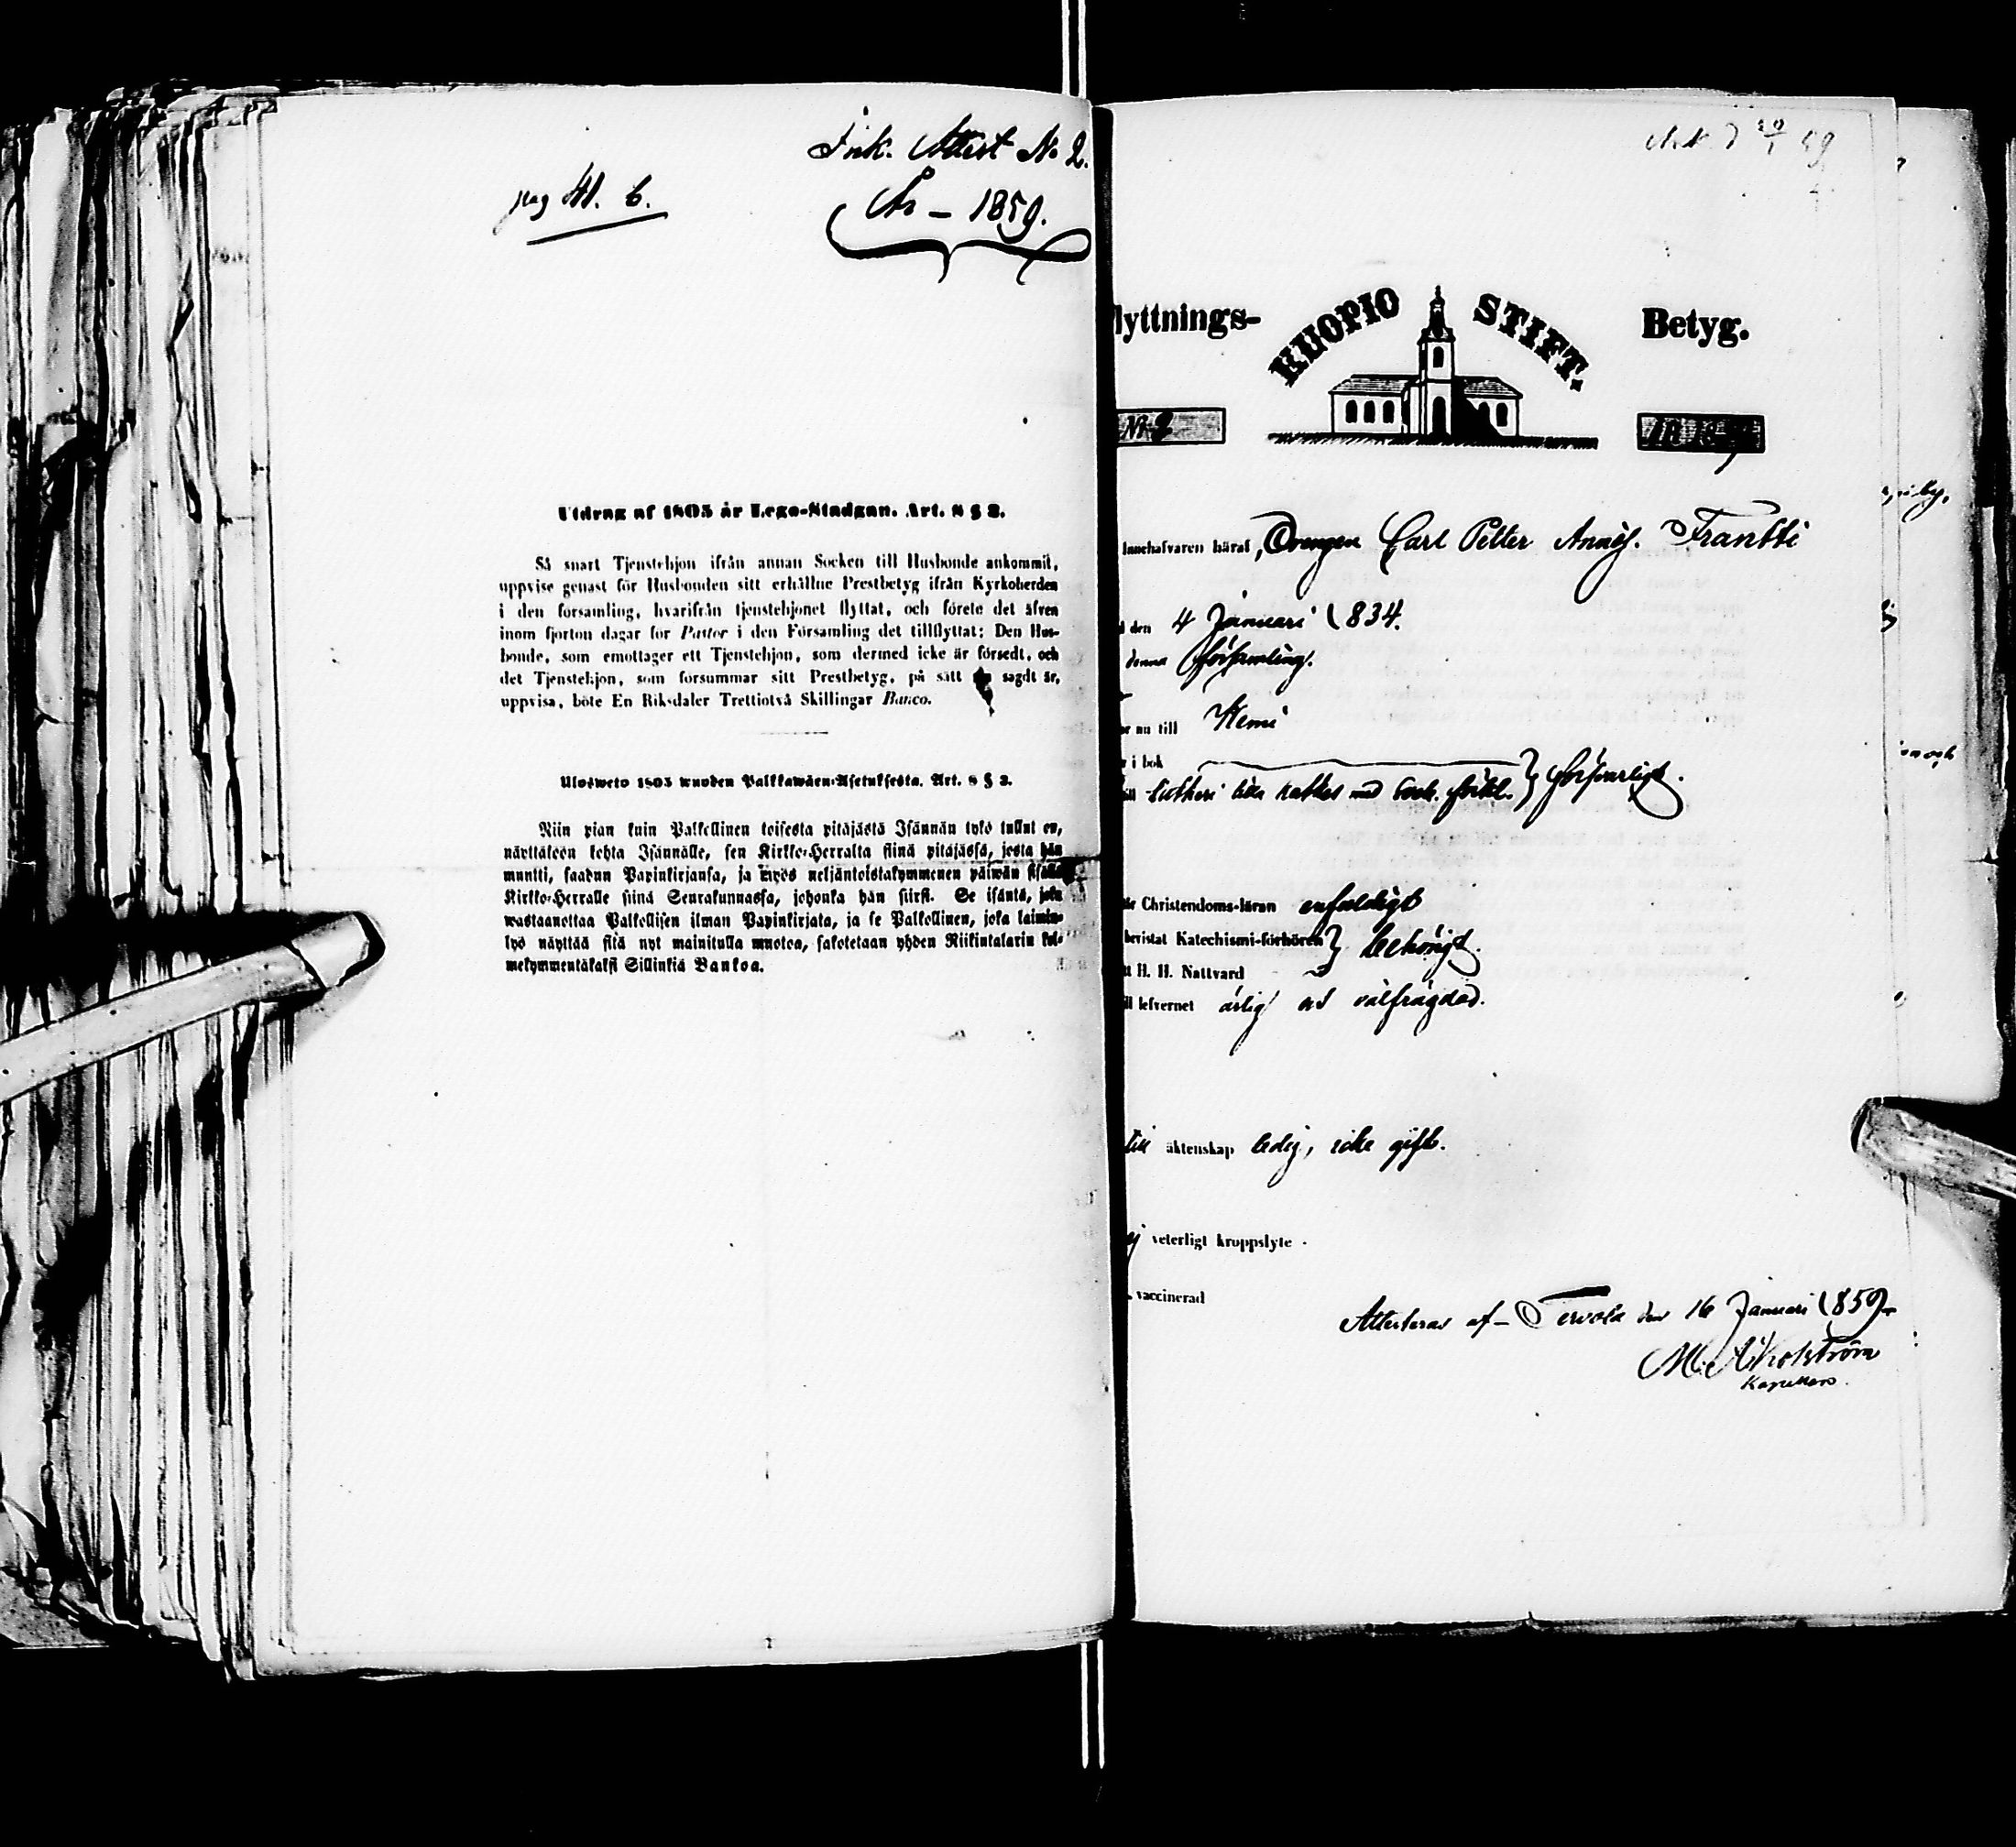 Ink. Attest No 2.
År – 1859.
pag 41. b.
Utdrag af 1805 år Lego-Stadgan. Art. 8 § 2.
Så snart Tjenstehjon ifrån annan Socken till Husbonde ankommit,
uppvise genast för Husbonden sitt erhållne Prestbetyg ifrån Kyrkoherden
i den församling, hvarifrån tjenstehjonet flyttat, och förete det äfven
inom fjorton dagar för Pastor i den Församling det tillflyttat; Den Hus-
bonde, som emottager ett Tjenstehjon, som dermed icke är försedt, och
det Tjenstehjon, som försummar sitt Prestbetyg, på sätt sagdt är,
uppvisa, böte En Riksdaler Trettiotvå Skillingar Banco.
Ulosweto 1805 wuoden Palkkawäen-Asetuksesta. Art. 8 § 2.
Niin pian kuin Palkollinen toisesta pitäjästä Isännän tykö tullut on,
näyttäköön kohta Isännälle, sen Kirkko-Herralta siinä pitäjässä, josta hän
muutti, saadun Papinkirjansa, ja myös neljäntoistakymmenen päiwän sisällä
Kirkko-Herralle siinä Seurakunnassa, johonka hän siirsi. Se isäntä, joka
wastaanottaa Palkollisen ilman Papinkirjata, ja se Palkollinen, joka laimin-
lyö näyttää sitä nyt mainitulla muotoa, sakotetaan yhden Riikintalarin kol-
mekymmentäkaksi Sillinkiä Bankoa.
lyttnings- KUOPIO STIFT. Betyg.
N:o 2
Innehafvaren häraf, Drengen Carl Petter Anders. Frantti
den 4 Januari 1834.
denna församling.
nu till Kemi
i bok
Lutheri lilla kathes med förkl. } försvarligt.
Christendoms-läran enfaldigt
bevistat Katechismi-förhören } behörigt.
H. H. Nattvard
lefvernet ärlig och välfrägdad.
till äktenskap ledig, icke gift.
ej veterligt kroppslyte.
vaccinerad
Attesteras af Tervola den 16 Januari 1859.
Kapellan.